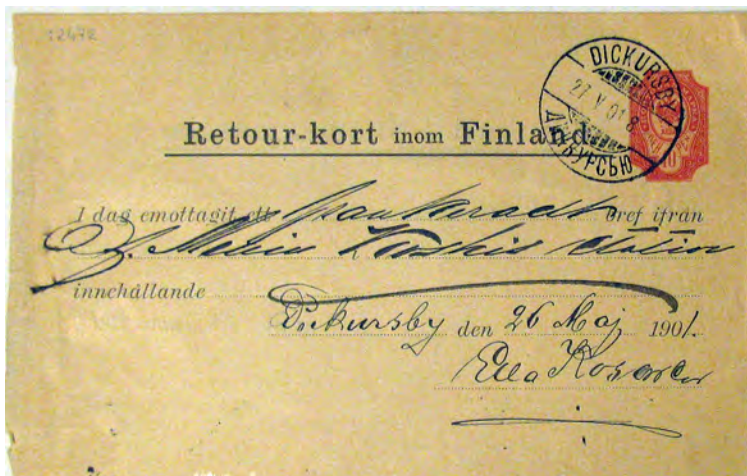 12472
DICKURSBY
27 V 01 8
ДИККУРСБЮ
10
Retour-kort inom Finland.
I dag emottagit ett frankeradt bref ifrån
innehållande
Dickursby den 26 Maj 1901.
Ella